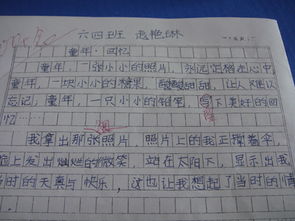 六四班
童年·回忆
童年，一张小小的照片，永远 在心中
童年，一块小小的糖果， 让人难以
忘记，童年，一只小小的 ，写下美好的回
忆……
我拿出那张照片，照片上的我正撑着伞，
脸上发出灿烂的微笑，站在太阳下，显示出我
当时的天真与快乐，这也让我想起了当时的情